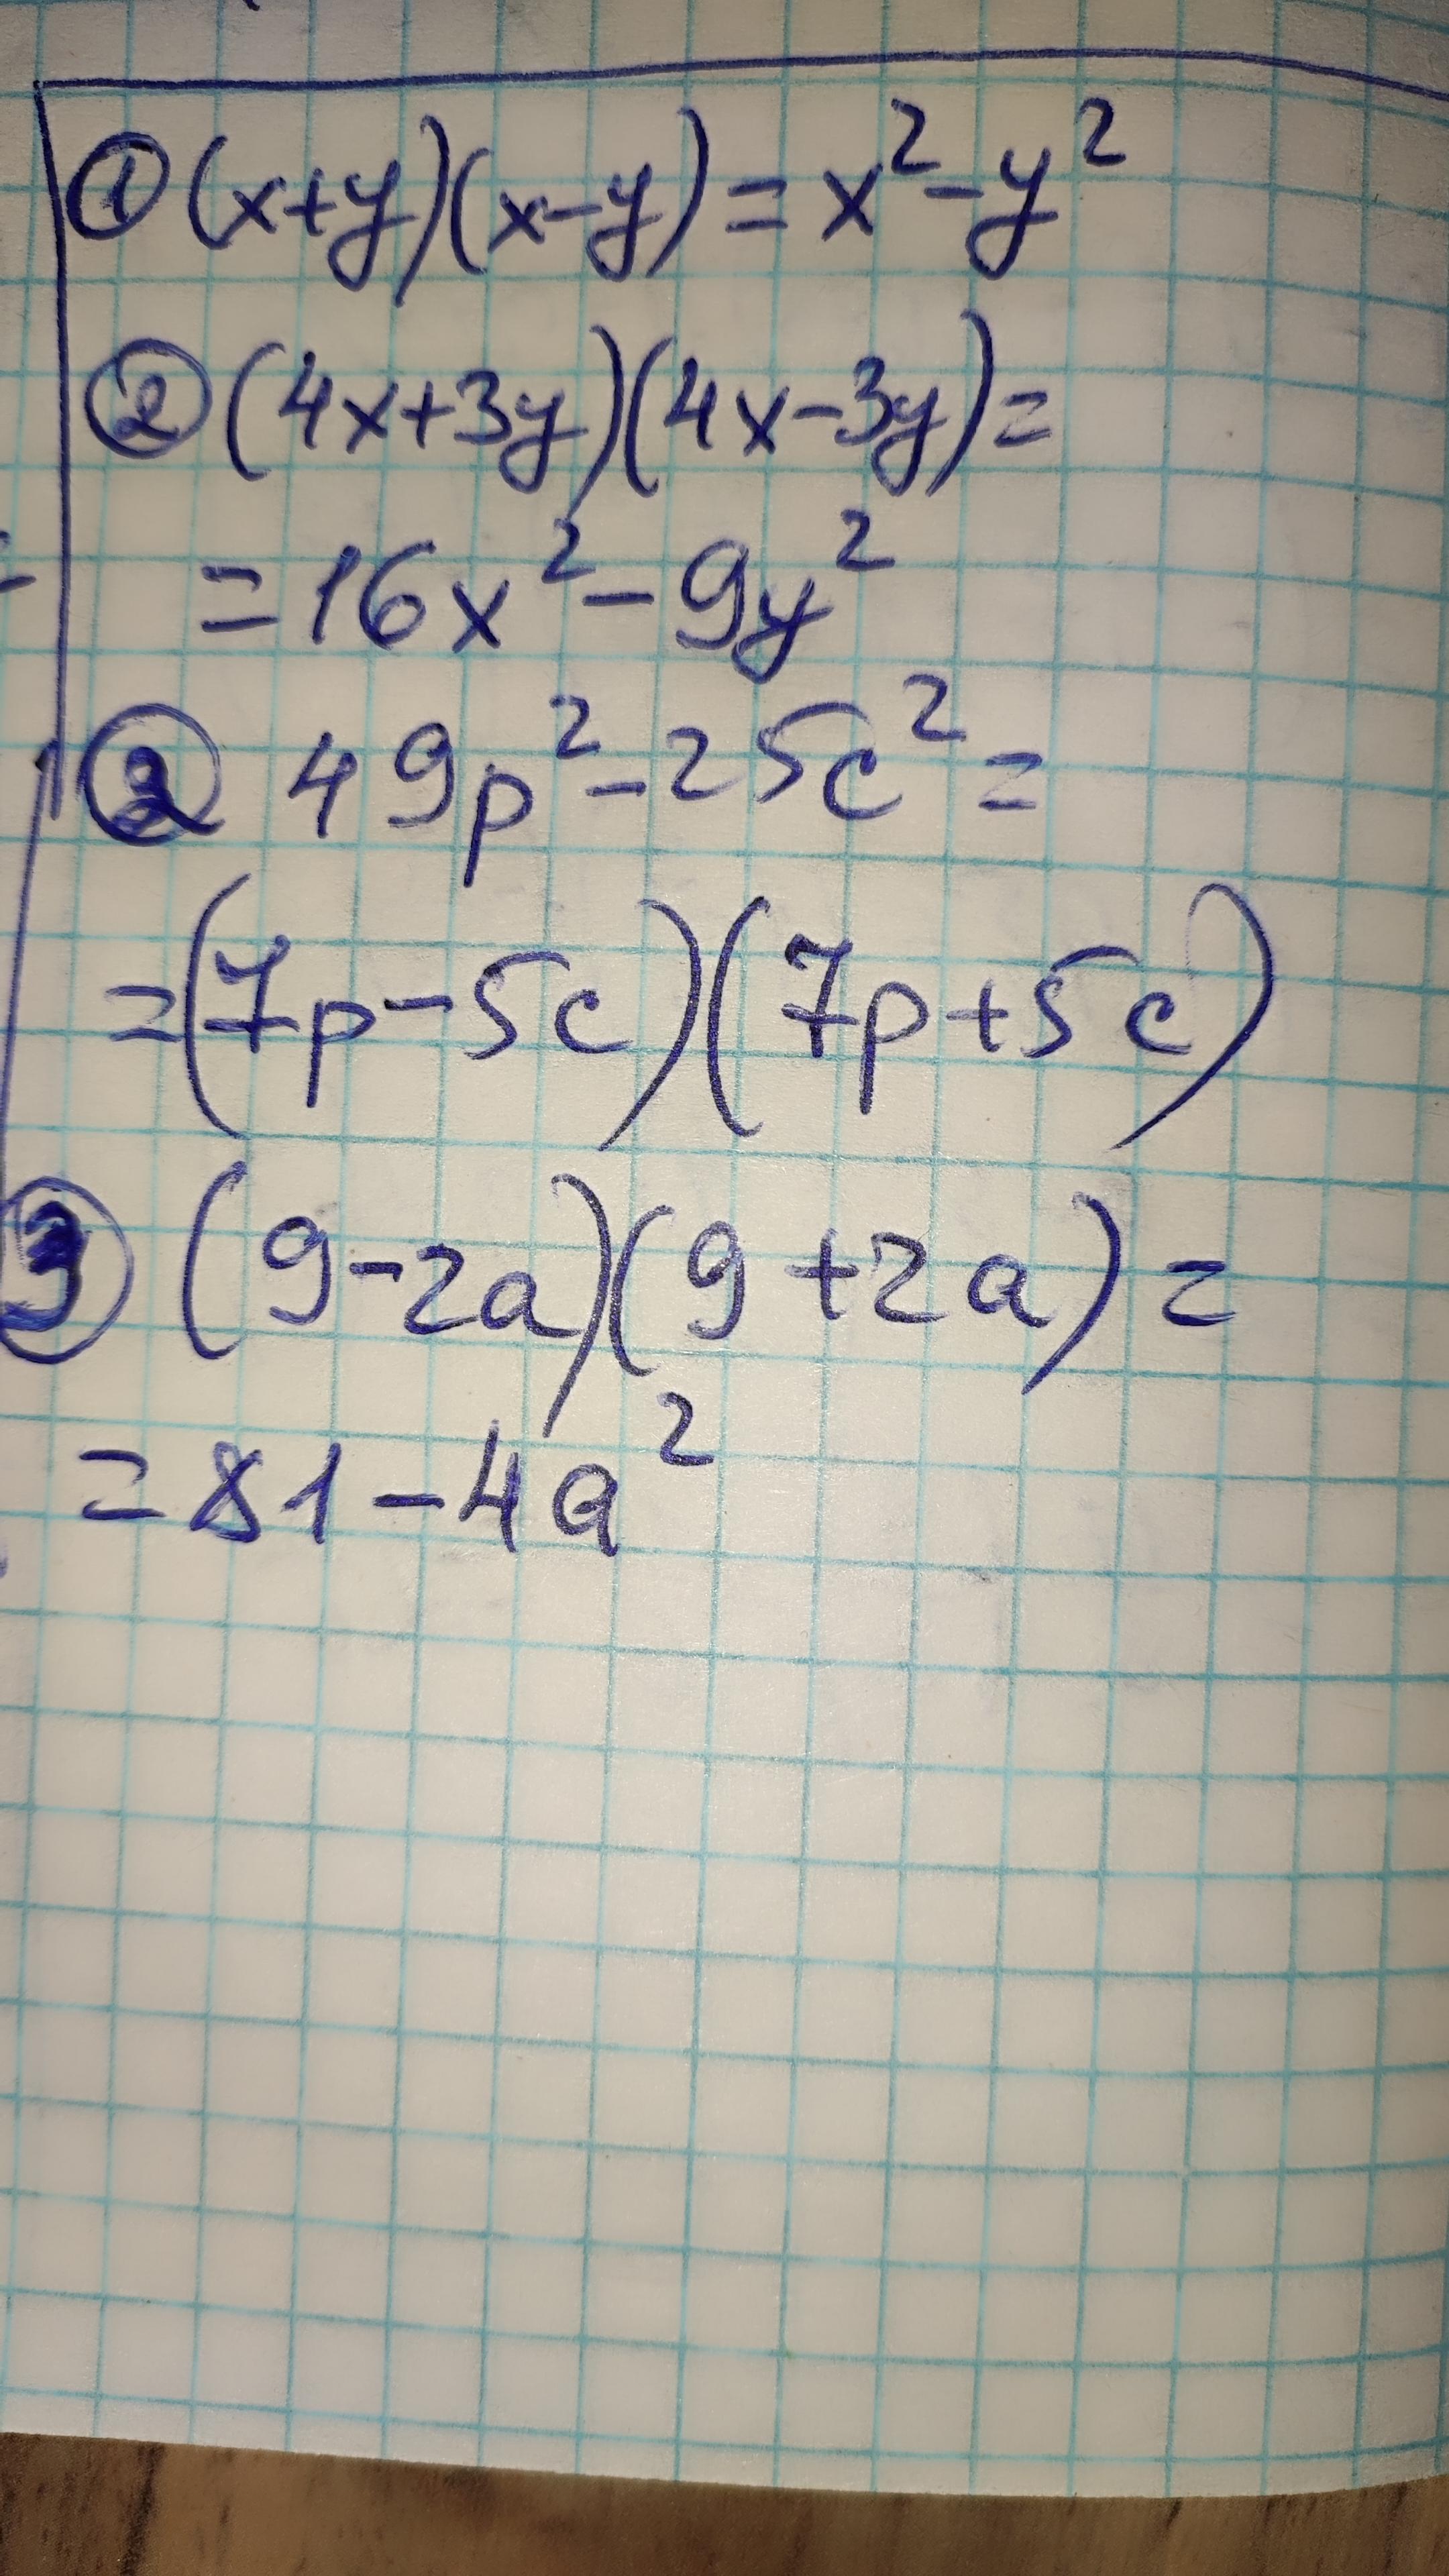 ① (x+y)(x-y)=x²-y²
② (4x+3y)(4x-3y)=
=16x²-9y²
② 49p²-25c²=
=(7p-5c)(7p+5c)
③ (9-2a)(9+2a)=
=81-4a²